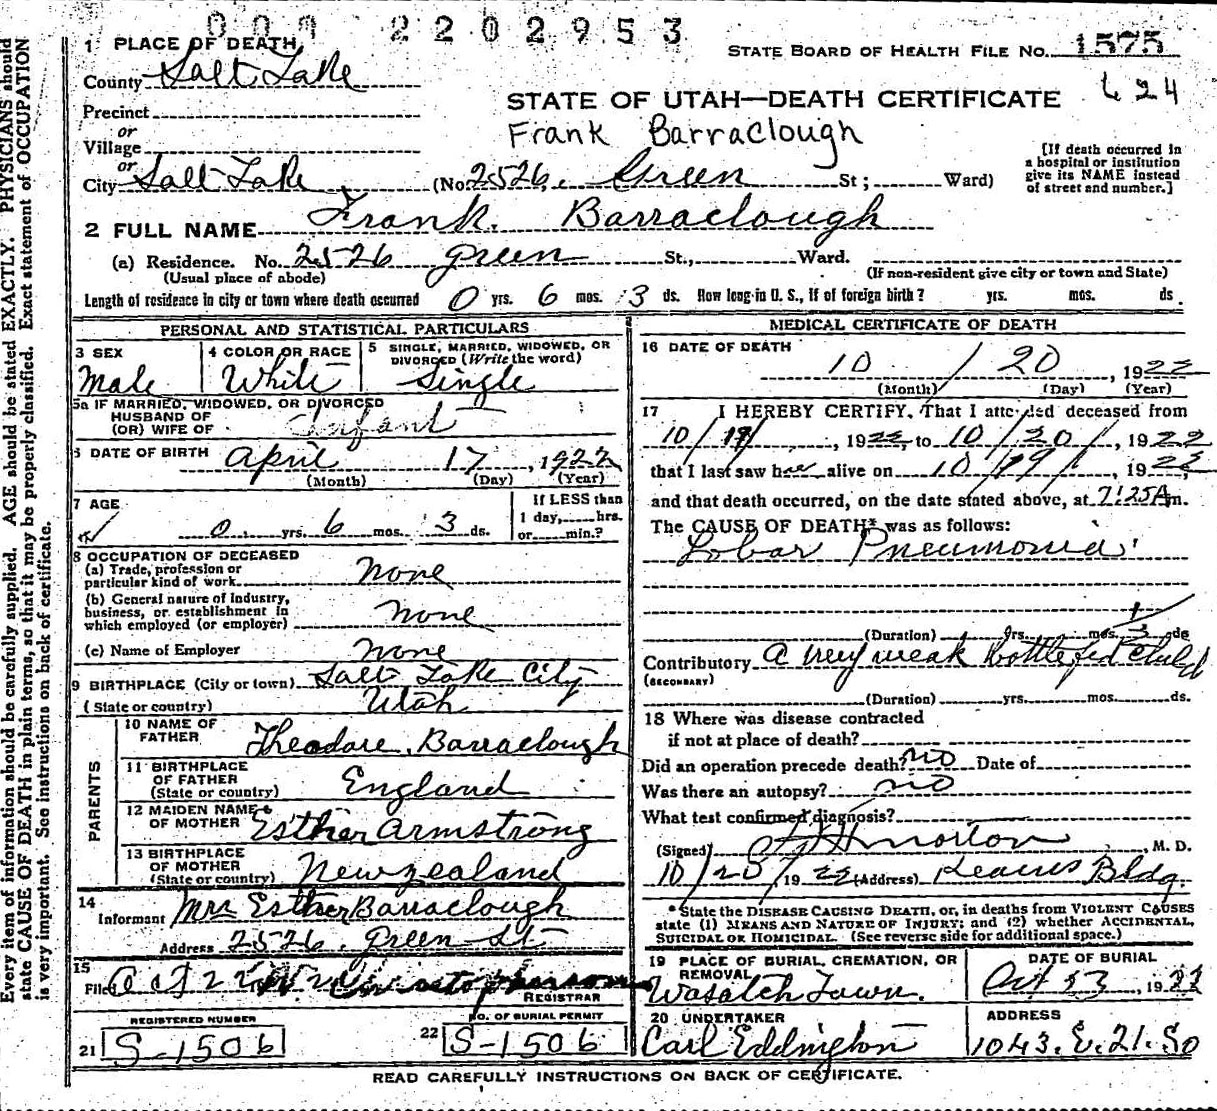 009 2202953
1 PLACE OF DEATH
STATE BOARD OF HEALTH FILE NO. 1575
County Salt Lake
624
STATE OF UTAH—DEATH CERTIFICATE
Precinct
Frank Barraclough
or
Village
or
City Salt Lake (No. 2526 Green St; Ward)
[If death occurred in
a hospital or institution
give its NAME instead
of street and number.]
2 FULL NAME Frank. Barraclough
(a) Residence. No. 2526 Green St., Ward.
(Usual place of abode)
(If non-resident give city or town and State)
Length of residence in city or town where death occurred 0 yrs. 6 mos. 3 ds. How long in U. S., if of foreign birth? yrs. mos. ds.
PERSONAL AND STATISTICAL PARTICULARS
3 SEX
Male
4 COLOR OR RACE
White
5 SINGLE, MARRIED, WIDOWED, OR
DIVORCED (Write the word)
Single
5a IF MARRIED, WIDOWED, OR DIVORCED
HUSBAND OF
(OR) WIFE OF
Infant
6 DATE OF BIRTH April 17, 1922
(Month) (Day) (Year)
7 AGE
0 yrs. 6 mos. 3 ds.
If LESS than
1 day, hrs.
or min.?
8 OCCUPATION OF DECEASED
(a) Trade, profession or
particular kind of work None
(b) General nature of industry,
business, or establishment in
which employed (or employer) None
(c) Name of Employer None
9 BIRTHPLACE (City or town) Salt Lake City
(State or country) Utah
PARENTS
10 NAME OF
FATHER Theodore. Barraclough
11 BIRTHPLACE
OF FATHER
(State or country) England
12 MAIDEN NAME
OF MOTHER Esther Armstrong
13 BIRTHPLACE
OF MOTHER
(State or country) New zealand
14
Informant Mrs Esther Barraclough
Address 2526. Green St
15
Filed Oct 22
REGISTRAR
REGISTERED NUMBER
21 S-1506
NO. OF BURIAL PERMIT
22 S-1506
MEDICAL CERTIFICATE OF DEATH
16 DATE OF DEATH
10 / 20, 1922
(Month) (Day) (Year)
17 I HEREBY CERTIFY, That I attended deceased from
10/19/, 1922, to 10/20/, 1922
that I last saw h alive on 10/19/, 1922,
and that death occurred, on the date stated above, at 7:25 A m.
The CAUSE OF DEATH* was as follows:
Lobar Pneumonia
(Duration) yrs. mos. 3 ds
Contributory A very weak bottle fed child
(SECONDARY)
(Duration) yrs. mos. ds.
18 Where was disease contracted
if not at place of death?
Did an operation precede death? no Date of
Was there an autopsy? no
What test confirmed diagnosis?
(Signed) Morton, M. D.
10/20/1922 (Address) Kearns Bldg.
*State the DISEASE CAUSING DEATH, or, in deaths from VIOLENT CAUSES
state (1) MEANS AND NATURE OF INJURY; and (2) whether ACCIDENTAL,
SUICIDAL OR HOMICIDAL. (See reverse side for additional space.)
19 PLACE OF BURIAL, CREMATION, OR
REMOVAL
Wasatch Lawn.
DATE OF BURIAL
Oct 23, 1922
20 UNDERTAKER
Carl Eddington
ADDRESS
1043. E. 21. So
READ CAREFULLY INSTRUCTIONS ON BACK OF CERTIFICATE.
Every item of information should be carefully supplied. AGE should be stated EXACTLY. PHYSICIANS should
state CAUSE OF DEATH in plain terms, so that it may be properly classified. Exact statement of OCCUPATION
is very important. See instructions on back of certificate.